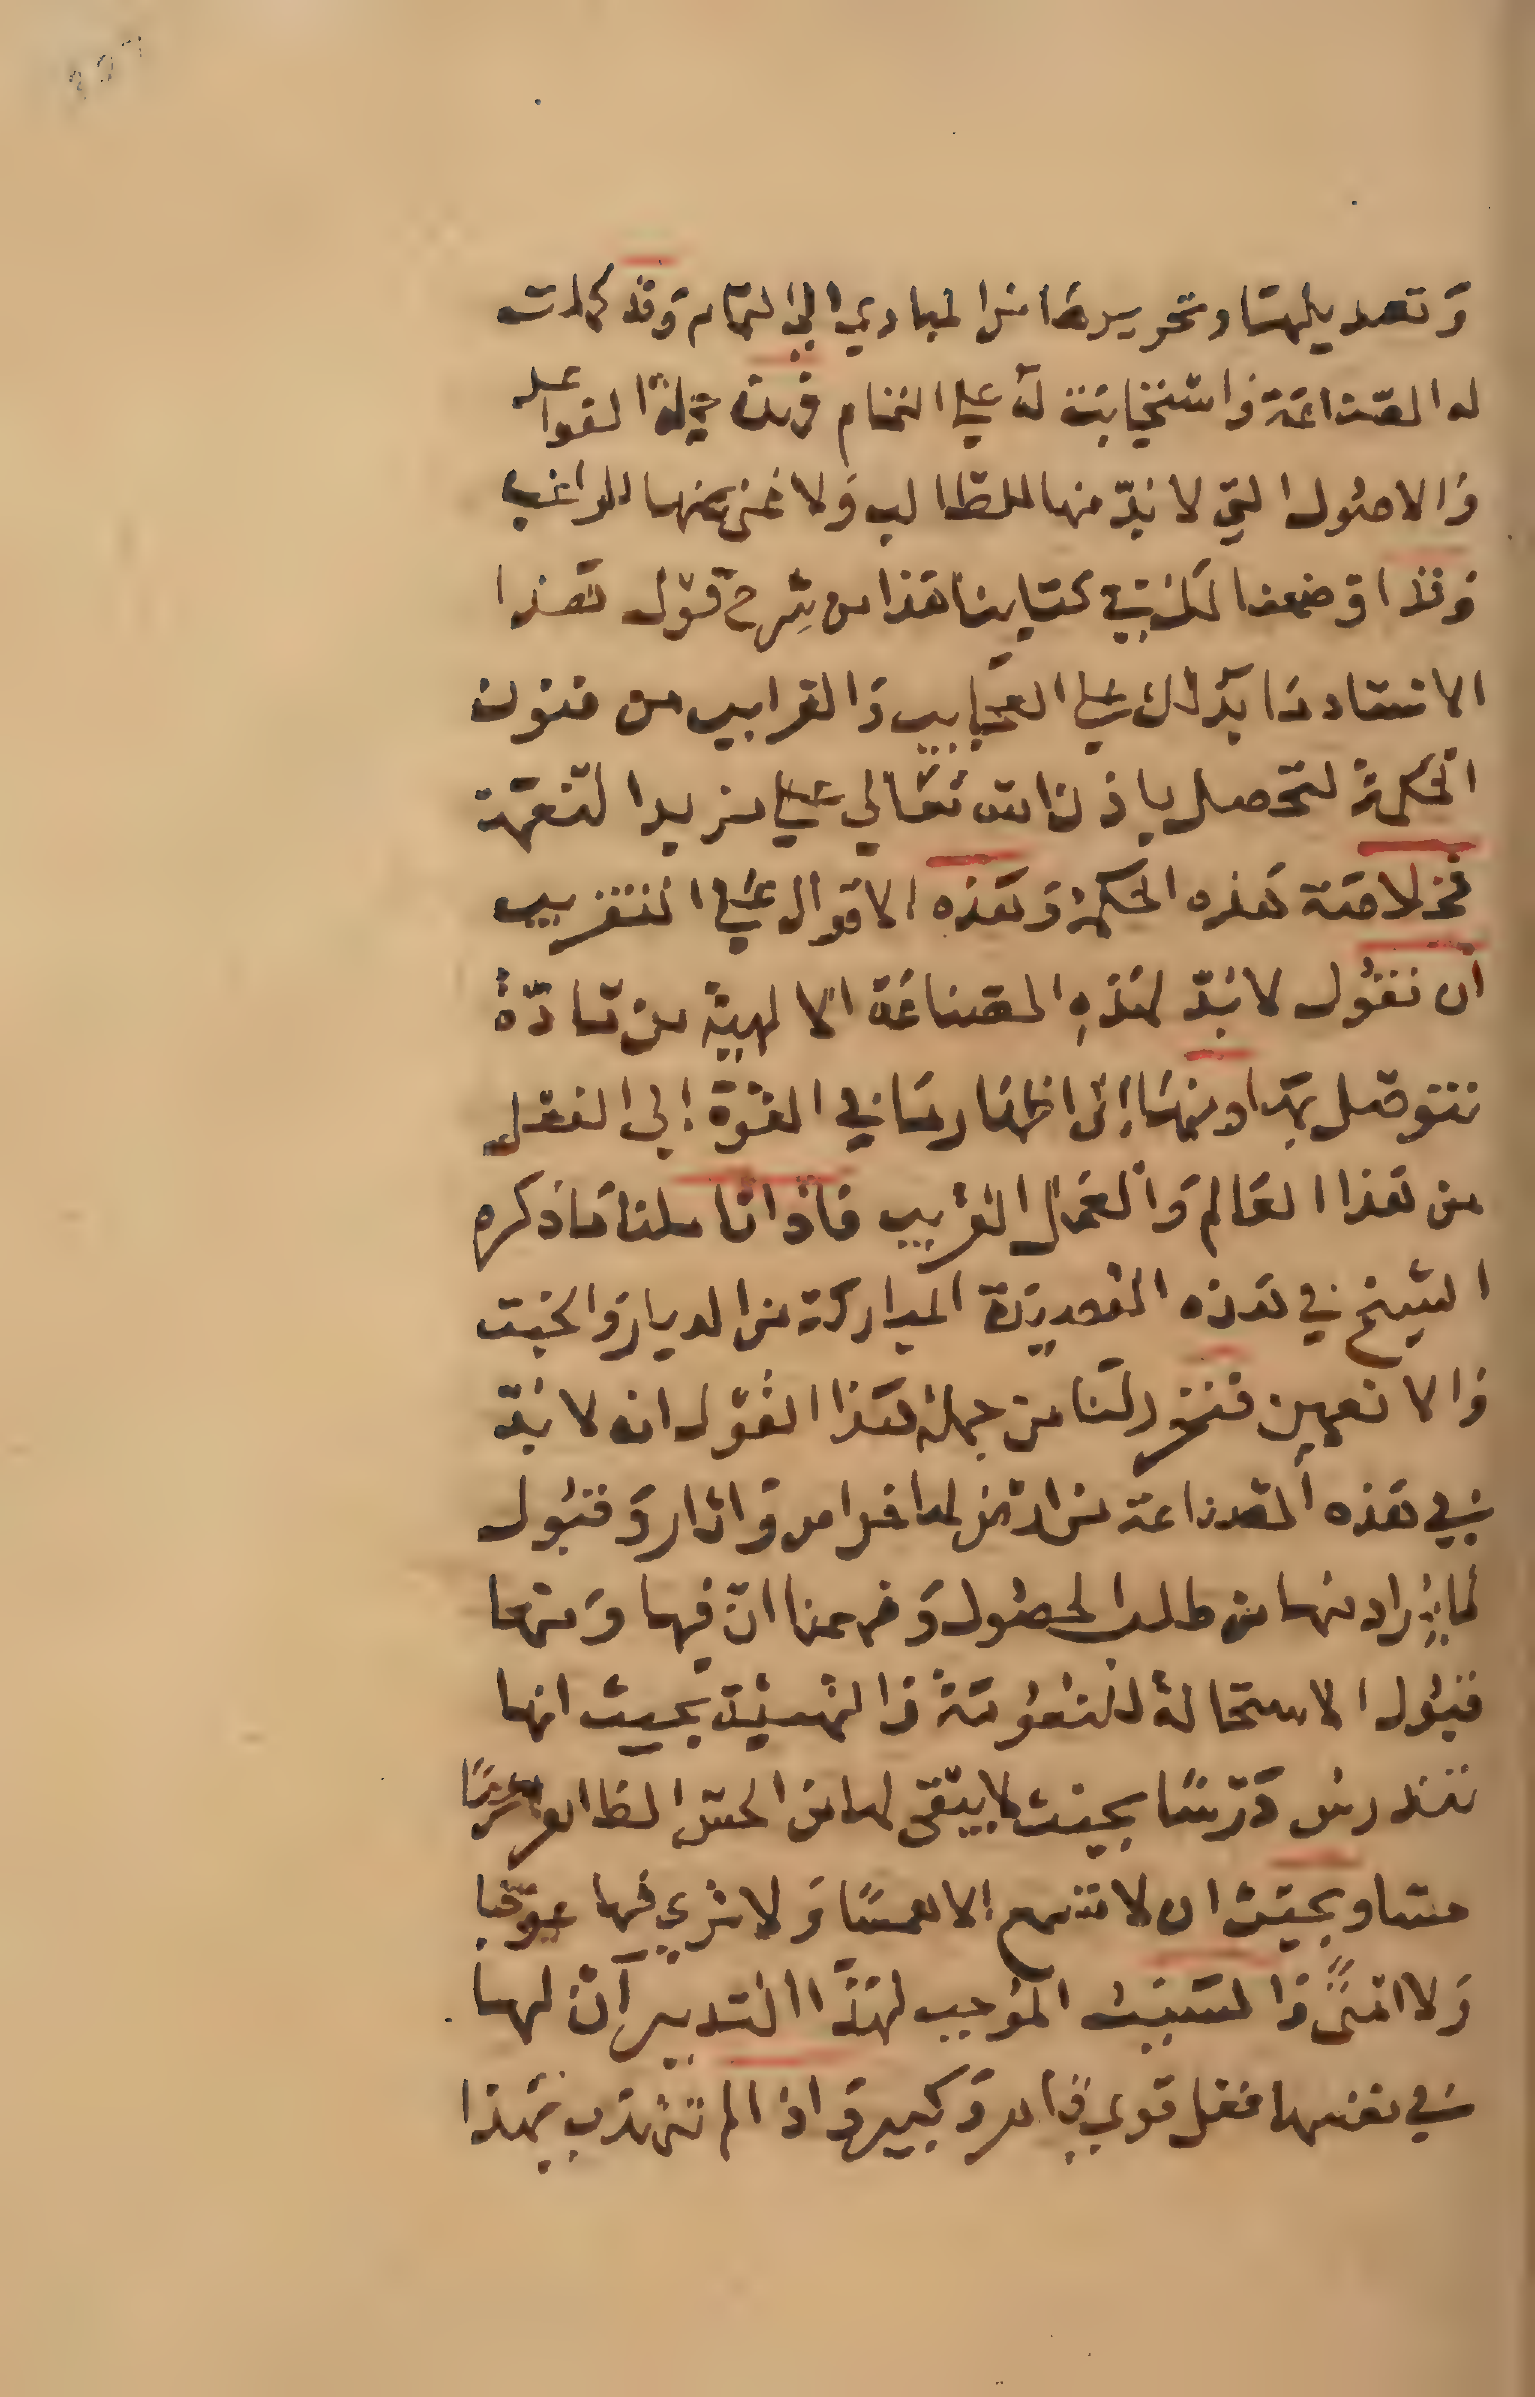 وتعديلها وتحريرها من المبادي الى التمام وقد كملت
له الصناعة واستجابت له على التمام فهذه جملة القواعد
والاصول التي لا بد منها للطالب ولا غنى عنها للراغب
وقد اوضعنا لك في كتابنا هذا من شرح قول هذا
الاستاد ما يدلك على العجايب والغرايب من فنون
الحكمة لتحصل باذن الله تعالي على مزيد النعمة
فخلاصة هذه الحكمة وهذه الاقوال على التقريب
ان نقول لا بد لهذه الصناعة الالهية من مادة
نتوصل بها ومنها الى اظهار ما في القوة الى الفعل
من هذا العالم والعمل الغريب فاذا تاملنا ما ذكره
الشيخ في هذه القصيدة المباركة من الديار والخبت
والا فتحرر لنا من جملة هذا القول انه لا بد
في هذه الصناعة من ارض لها خواص واثار وقبول
لما يراد منها من طلب الحصول وفهمنا ان فيها ومنها
قبول الاستحالة للنعومة والتهيئة بحيث انها
تندرس درسا بحيث لا يبقى لها من الحس الظاهر
حسا وبحيث ان لا تسمع الا همسا ولا ترى فيها عوجا
ولا امتى والسبب الموجب لهذا التدبير ان لها
في نفسها فعل قوي وكبير واذا لم تهذب بهذا